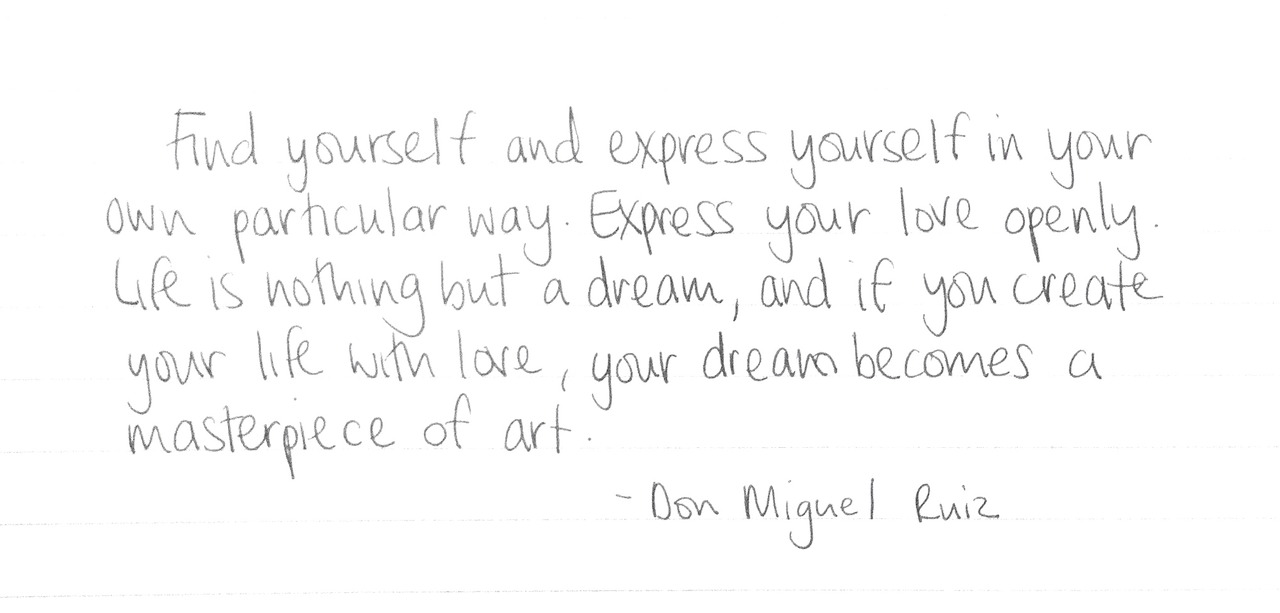 Find yourself and express yourself in your
own particular way. Express your love openly.
Life is nothing but a dream, and if you create
your life with love, your dream becomes a
masterpiece of art.
- Don Miguel Ruiz